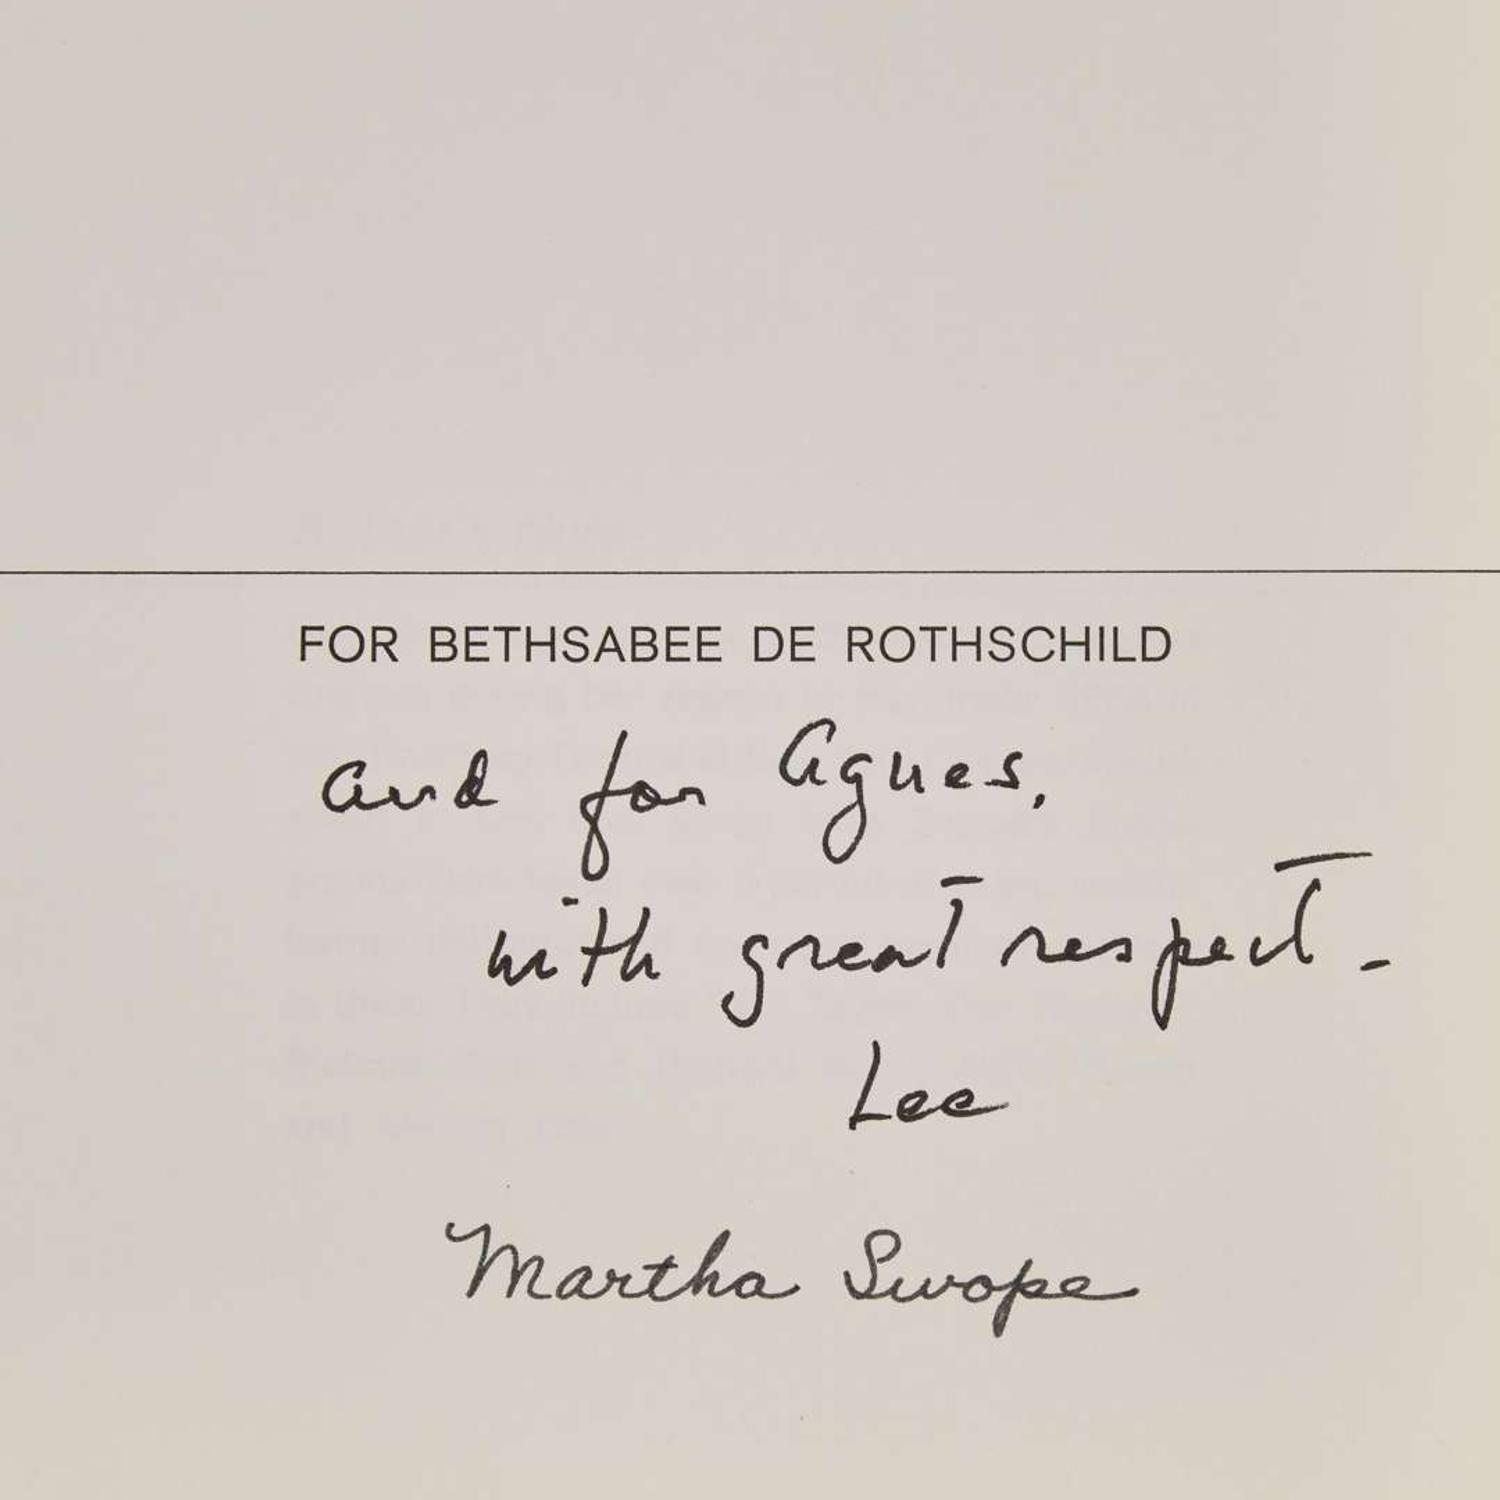 FOR BETHSABEE DE ROTHSCHILD
and for Agnes,
with great respect –
Lee
Martha Swope